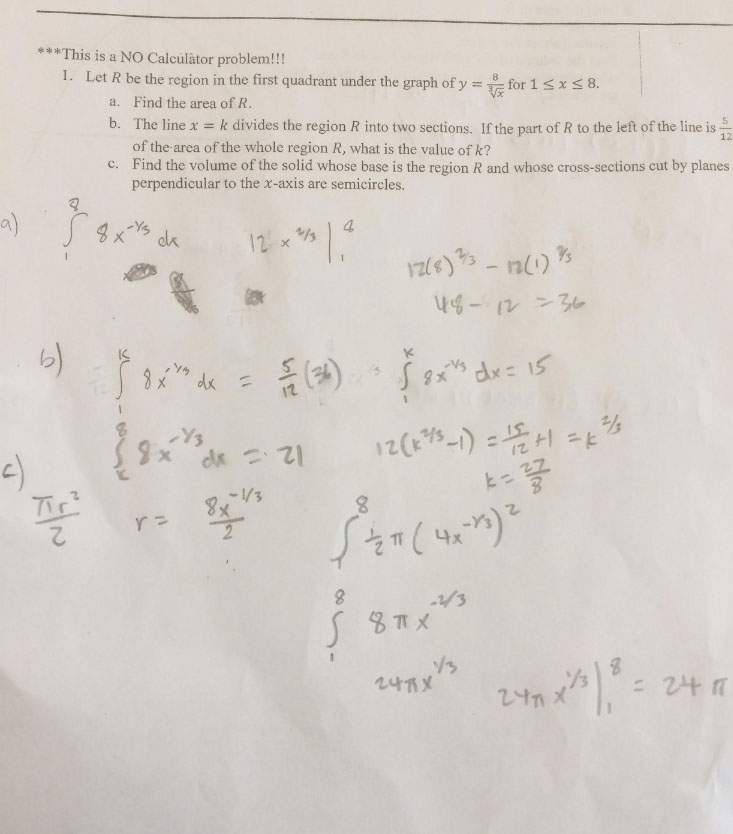 ***This is a NO Calculator problem!!!
1. Let R be the region in the first quadrant under the graph of y = 8/∛x for 1 ≤ x ≤ 8.
a. Find the area of R.
b. The line x = k divides the region R into two sections. If the part of R to the left of the line is 5/12
of the area of the whole region R, what is the value of k?
c. Find the volume of the solid whose base is the region R and whose cross-sections cut by planes
perpendicular to the x-axis are semicircles.
a) ∫₁⁸ 8x^(-1/3) dx 12 x^(2/3) |₁⁸
12(8)^(2/3) - 12(1)^(2/3)
48 - 12 = 36
b) ∫₁ᴷ 8x^(-1/3) dx = 5/12 (36) ∫₁ᴷ 8x^(-1/3) dx = 15
∫ₖ⁸ 8x^(-1/3) dx = 21 12(k^(2/3) - 1) = 15/12 + 1 = k^(2/3)
k = 27/8
c) πr²/2 r = 8x^(-1/3)/2
∫₁⁸ 1/2 π (4x^(-1/3))²
∫₁⁸ 8πx^(-2/3)
24πx^(1/3) 24πx^(1/3) |₁⁸ = 24π